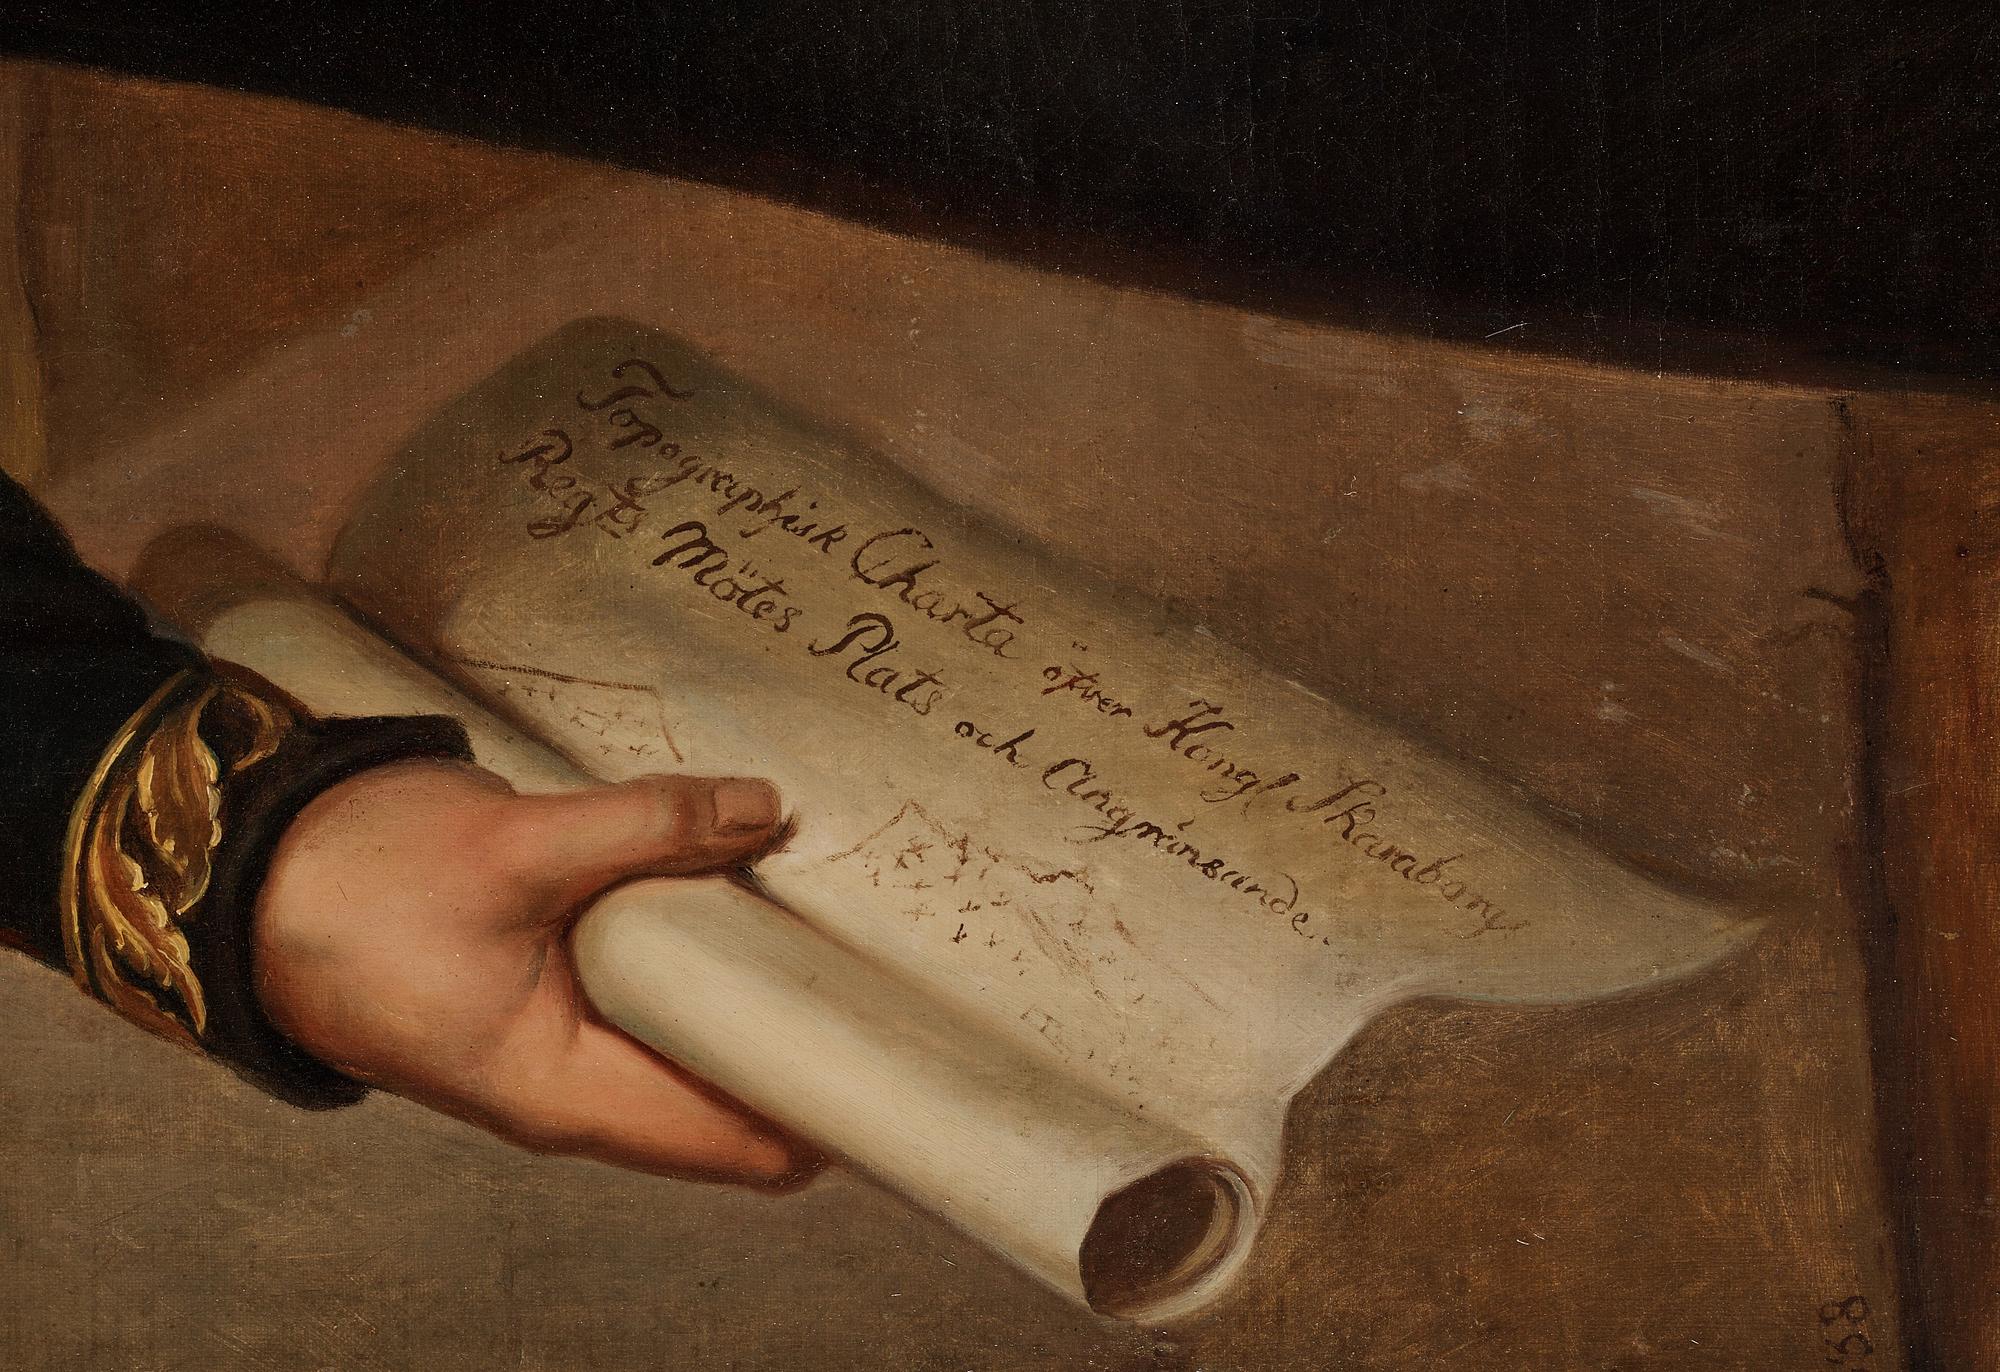 Topographisk Charta öfver Kongl Skaraborgs
Regts Mötes Plats och Angränsande..